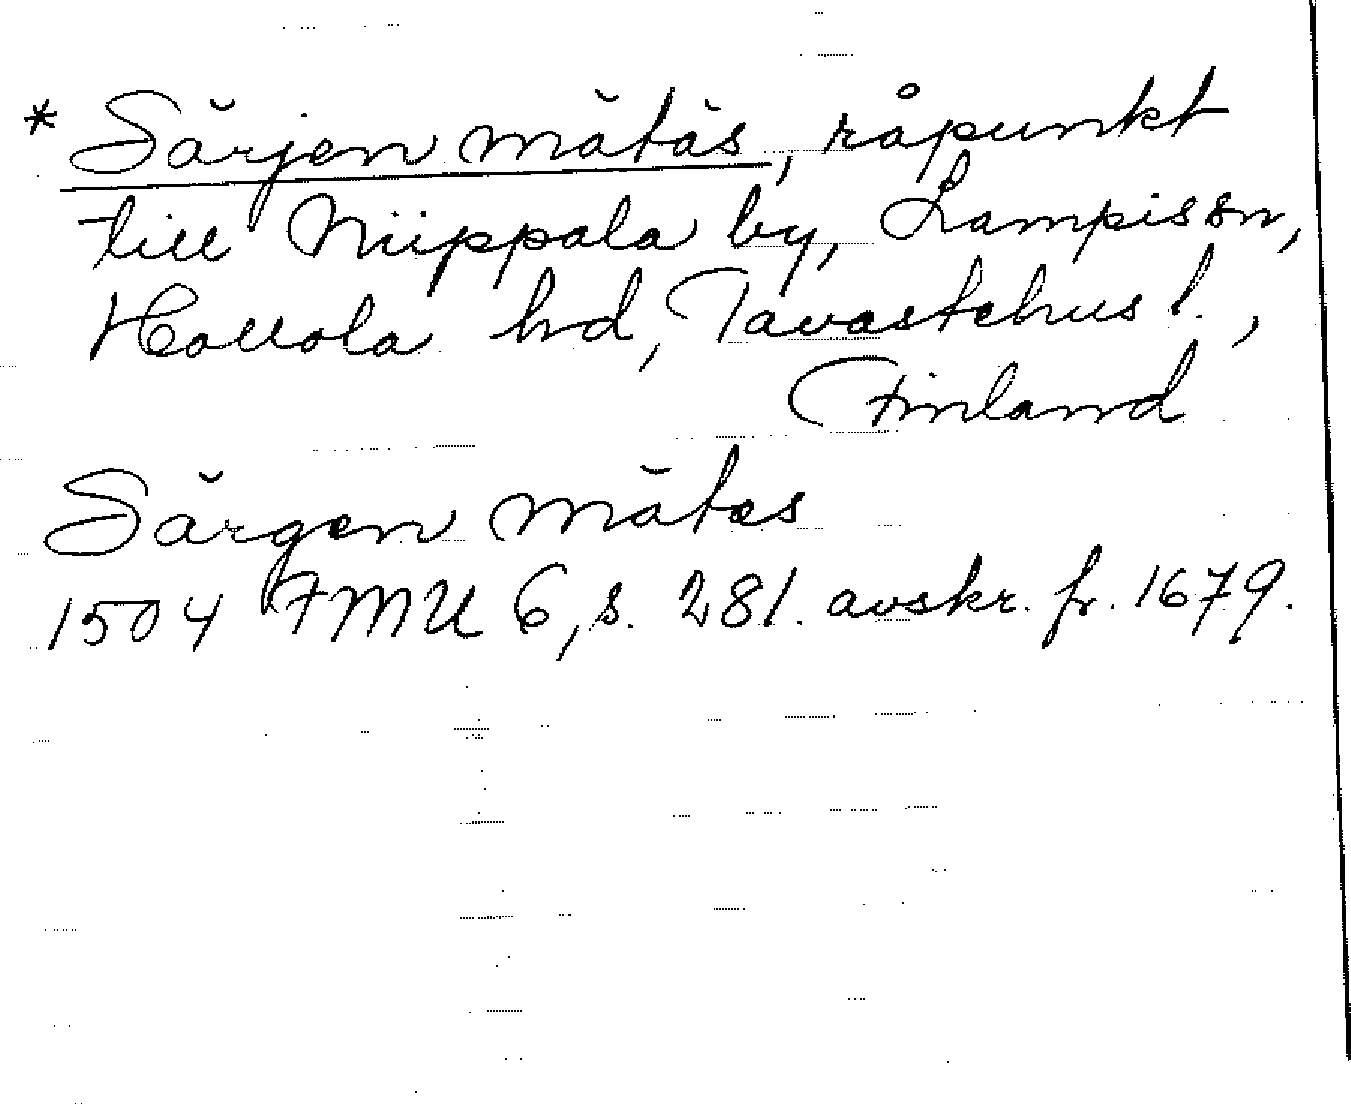 * Särjen mätäs, råpunkt
till Niippala by, Lampis sn,
Hollola hd, Tavastehus l.,
Finland
Särgen mätes
1504 FMU 6, s. 281. avskr. fr. 1679.